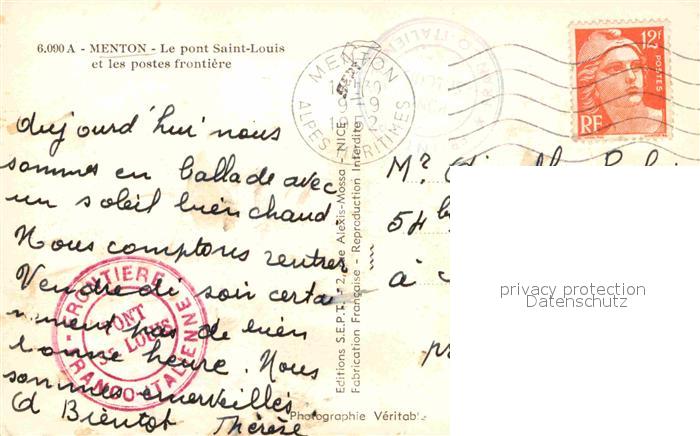 6.090 A - MENTON - Le pont Saint-Louis
et les postes frontière
MENTON
ALPES-MARITIMES
12f
POSTES
RF
aujourd'hui nous
sommes en ballade avec
un soleil bien chaud.
Nous comptons rentrer
Vendredi soir certai
nement pas de bien
bonne heure. Nous
sommes emerveillés.
A Bientot Thérèse
FRONTIERE
FRANCO-ITALIENNE
PONT
St LOUIS
Editions S.E.P.T. - 2, Rue Alexis-Mossa - NICE
Fabrication Française - Reproduction Interdite
Photographie Véritable
Mr
54 b
à
privacy protection
Datenschutz